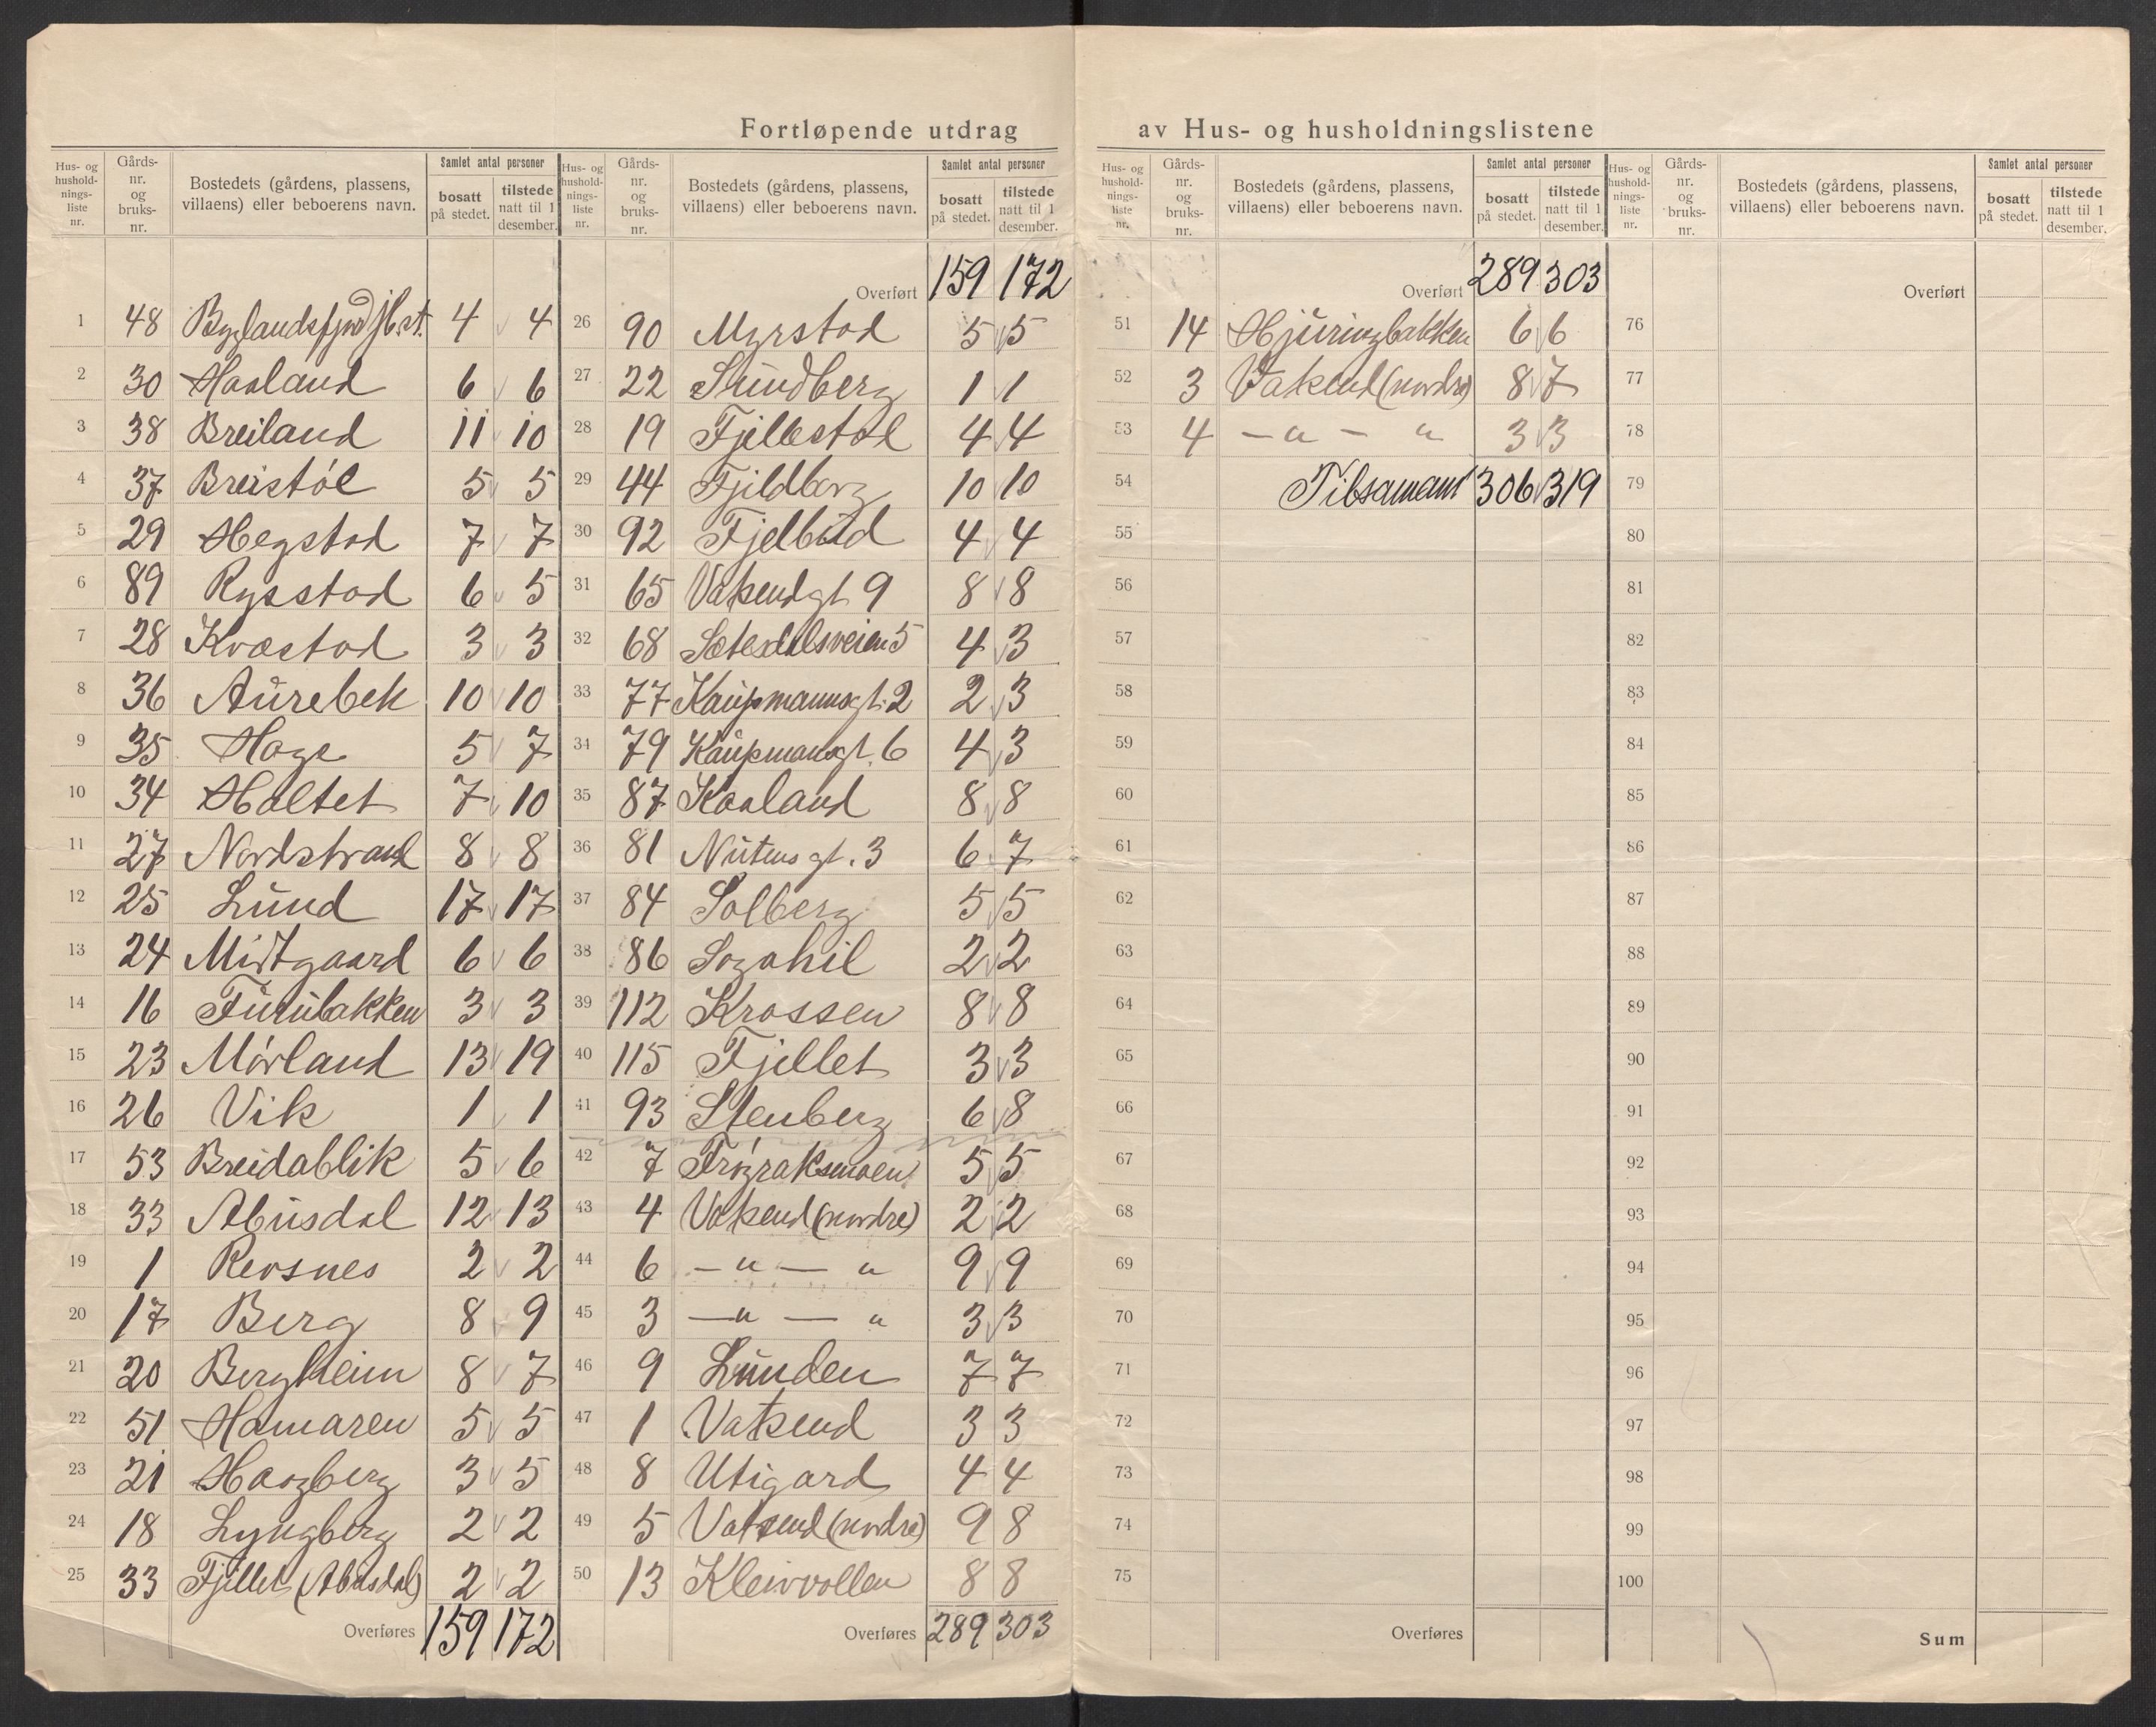 Fortløpende utdrag av Hus- og husholdningslistene
Hus- og husholdnings-liste nr. | Gårds-nr. og bruks-nr. | Bostedets (gårdens, plassens, villaens) eller beboerens navn. | Samlet antal personer | bosatt på stedet. | tilstede natt til 1 desember.
1 48 Byglandsfjord jb.st. 4 4
2 30 Haaland 6 6
3 38 Breiland 11 10
4 37 Breistöl 5 5
5 29 Hegstad 7 7
6 89 Rysstad 6 5
7 28 Kvæstad 3 3
8 36 Aurebek 10 10
9 35 Hage 5 7
10 34 Holtet 7 10
11 27 Nordstrand 8 8
12 25 Lund 17 17
13 24 Midtgaard 6 6
14 16 Furubakken 3 3
15 23 Mörland 13 19
16 26 Vik 1 1
17 53 Breidablik 5 6
18 33 Abusdal 12 13
19 1 Revsnes 2 2
20 17 Berg 8 9
21 20 Bergheim 8 7
22 51 Hamaren 5 5
23 21 Haugberg 3 5
24 18 Lyngberg 2 2
25 33 Fjellet (Abusdal) 2 2
Overføres 159 172
Hus- og husholdnings-liste nr. | Gårds-nr. og bruks-nr. | Bostedets (gårdens, plassens, villaens) eller beboerens navn. | Samlet antal personer | bosatt på stedet. | tilstede natt til 1 desember.
Overført 159 172
26 90 Myrstad 5 5
27 22 Sundberg 1 1
28 19 Fjellestøl 4 4
29 44 Fjeldberg 10 10
30 92 Fjelbud 4 4
31 65 Vatsendgt 9 8 8
32 68 Sætesdalsveien 5 4 3
33 77 Kaupmannsgt. 2 2 3
34 79 Kaupmansgt. 6 4 3
35 87 Kaaland 8 8
36 81 Nutens gt. 3 6 7
37 84 Solberg 5 5
38 86 2 2
39 112 Krossen 8 8
40 115 Fjellet 3 3
41 93 Stenberg 6 8
42 7 Frøyraksmoen 5 5
43 4 Vatsend (nordre) 2 2
44 6 — " — " 9 9
45 3 — " — " 3 3
46 9 Lunden 7 7
47 1 Vatsend 3 3
48 8 Utigard 4 4
49 5 Vatsend (nordre) 9 8
50 13 Kleivvollen 8 8
Overføres 289 303
Hus- og husholdnings-liste nr. | Gårds-nr. og bruks-nr. | Bostedets (gårdens, plassens, villaens) eller beboerens navn. | Samlet antal personer | bosatt på stedet. | tilstede natt til 1 desember.
Overført 289 303
51 14 Hjuringbakken 6 6
52 3 Vatsend (nordre) 8 7
53 4 — " — " 3 3
54 Tilsamans 306 319
55
56
57
58
59
60
61
62
63
64
65
66
67
68
69
70
71
72
73
74
75
Overføres
Hus- og husholdnings-liste nr. | Gårds-nr. og bruks-nr. | Bostedets (gårdens, plassens, villaens) eller beboerens navn. | Samlet antal personer | bosatt på stedet. | tilstede natt til 1 desember.
Overført
76
77
78
79
80
81
82
83
84
85
86
87
88
89
90
91
92
93
94
95
96
97
98
99
100
Sum